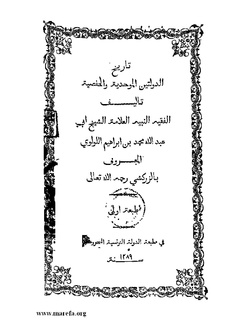 تاريخ
الدولتين الموحدية والحفصية
تأليف
الفقيه النبيه العلامة الشيخ ابي
عبد الله محمد بن ابراهيم اللولوي
المعروف
بالزركشي رحمه الله تعالى
طبعة اولى
في مطبعة الدولة التونسية
سنة ١٢٨٩
www.marefa.org